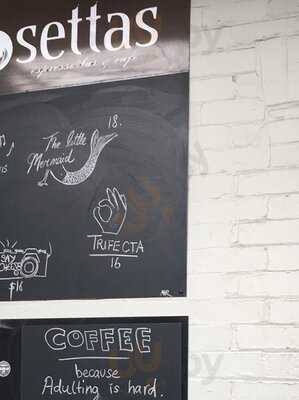 settas
espresso bar & café
18.
The little
Mermaid
15
TRIFECTA
16
SAY
CHEESE
$16
COFFEE
because
Adulting is hard.